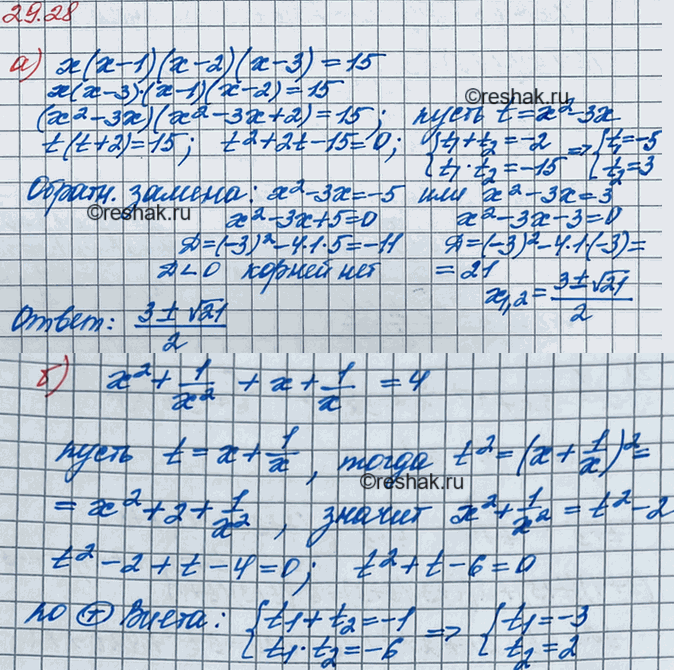 29.28
а) x(x-1)(x-2)(x-3)=15
x(x-3)·(x-1)(x-2)=15
©reshak.ru
(x²-3x)(x²-3x+2)=15; пусть t=x²-3x
t(t+2)=15; t²+2t-15=0; {t₁+t₂=-2 t₁·t₂=-15 => {t₁=-5 t₂=3
Обратн. замена: x²-3x=-5 или x²-3x=3
©reshak.ru
x²-3x+5=0 x²-3x-3=0
Д=(-3)²-4·1·5=-11 Д=(-3)²-4·1·(-3)=
Д<0 корней нет =21
x₁,₂=(3±√21)/2
Ответ: (3±√21)/2
б) x²+1/x²+x+1/x=4
пусть t=x+1/x, тогда t²=(x+1/x)²=
©reshak.ru
=x²+2+1/x², значит x²+1/x²=t²-2
t²-2+t-4=0; t²+t-6=0
по Т Виета: {t₁+t₂=-1 t₁·t₂=-6 => {t₁=-3 t₂=2